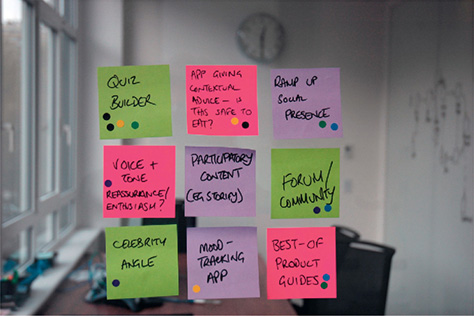 QUIZ
BUILDER
APP GIVING
CONTEXTUAL
ADVICE - IS
THIS SAFE TO
EAT?
RAMP UP
SOCIAL
PRESENCE
VOICE +
TONE
REASSURANCE/
ENTHUSIASM?
PARTICIPATORY
CONTENT
(EG STORIFY)
FORUM/
COMMUNITY
CELEBRITY
ANGLE
MOOD-
TRACKING
APP
BEST-OF
PRODUCT
GUIDES